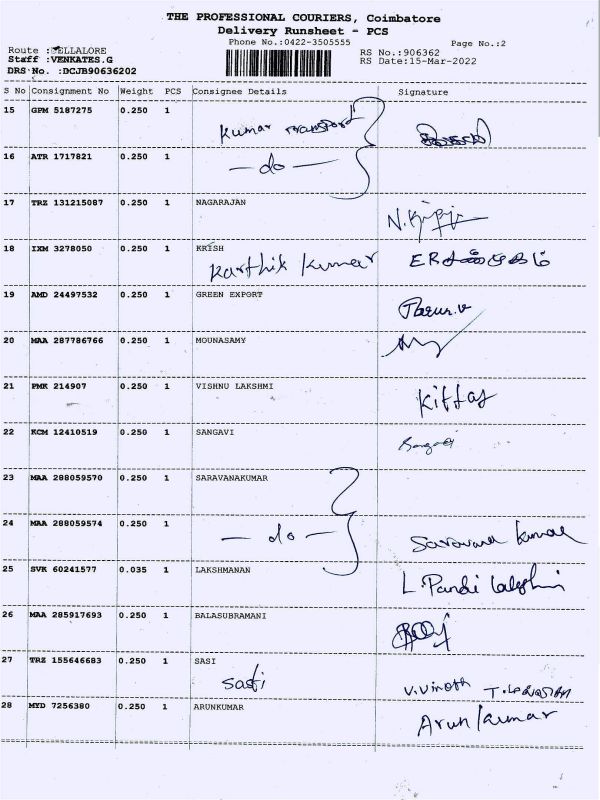 THE PROFESSIONAL COURIERS, Coimbatore
Delivery Runsheet - PCS
Phone No.:0422-3505555
Page No.:2
Route :VELLALORE
Staff :VENKATES.G
DRS No. :DCJB90636202
RS No.:906362
RS Date:15-Mar-2022
S No Consignment No Weight PCS Consignee Details Signature
15 GPM 5187275 0.250 1 Kumar Transport
16 ATR 1717821 0.250 1 — do —
17 TRZ 131215087 0.250 1 NAGARAJAN
18 IXM 3278050 0.250 1 KRISH
Karthik Kumar
19 AMD 24497532 0.250 1 GREEN EXPORT
20 MAA 287786766 0.250 1 MOUNASAMY
21 PMK 214907 0.250 1 VISHNU LAKSHMI
22 KCM 12410519 0.250 1 SANGAVI
23 MAA 288059570 0.250 1 SARAVANAKUMAR
24 MAA 288059574 0.250 1 — do — Saravana Kumar
25 SVK 60241577 0.035 1 LAKSHMANAN
L. Pandi
26 MAA 285917693 0.250 1 BALASUBRAMANI
27 TRZ 155646683 0.250 1 SASI
Sasi V.Vinoth
28 MYD 7256380 0.250 1 ARUNKUMAR
Arun Kumar